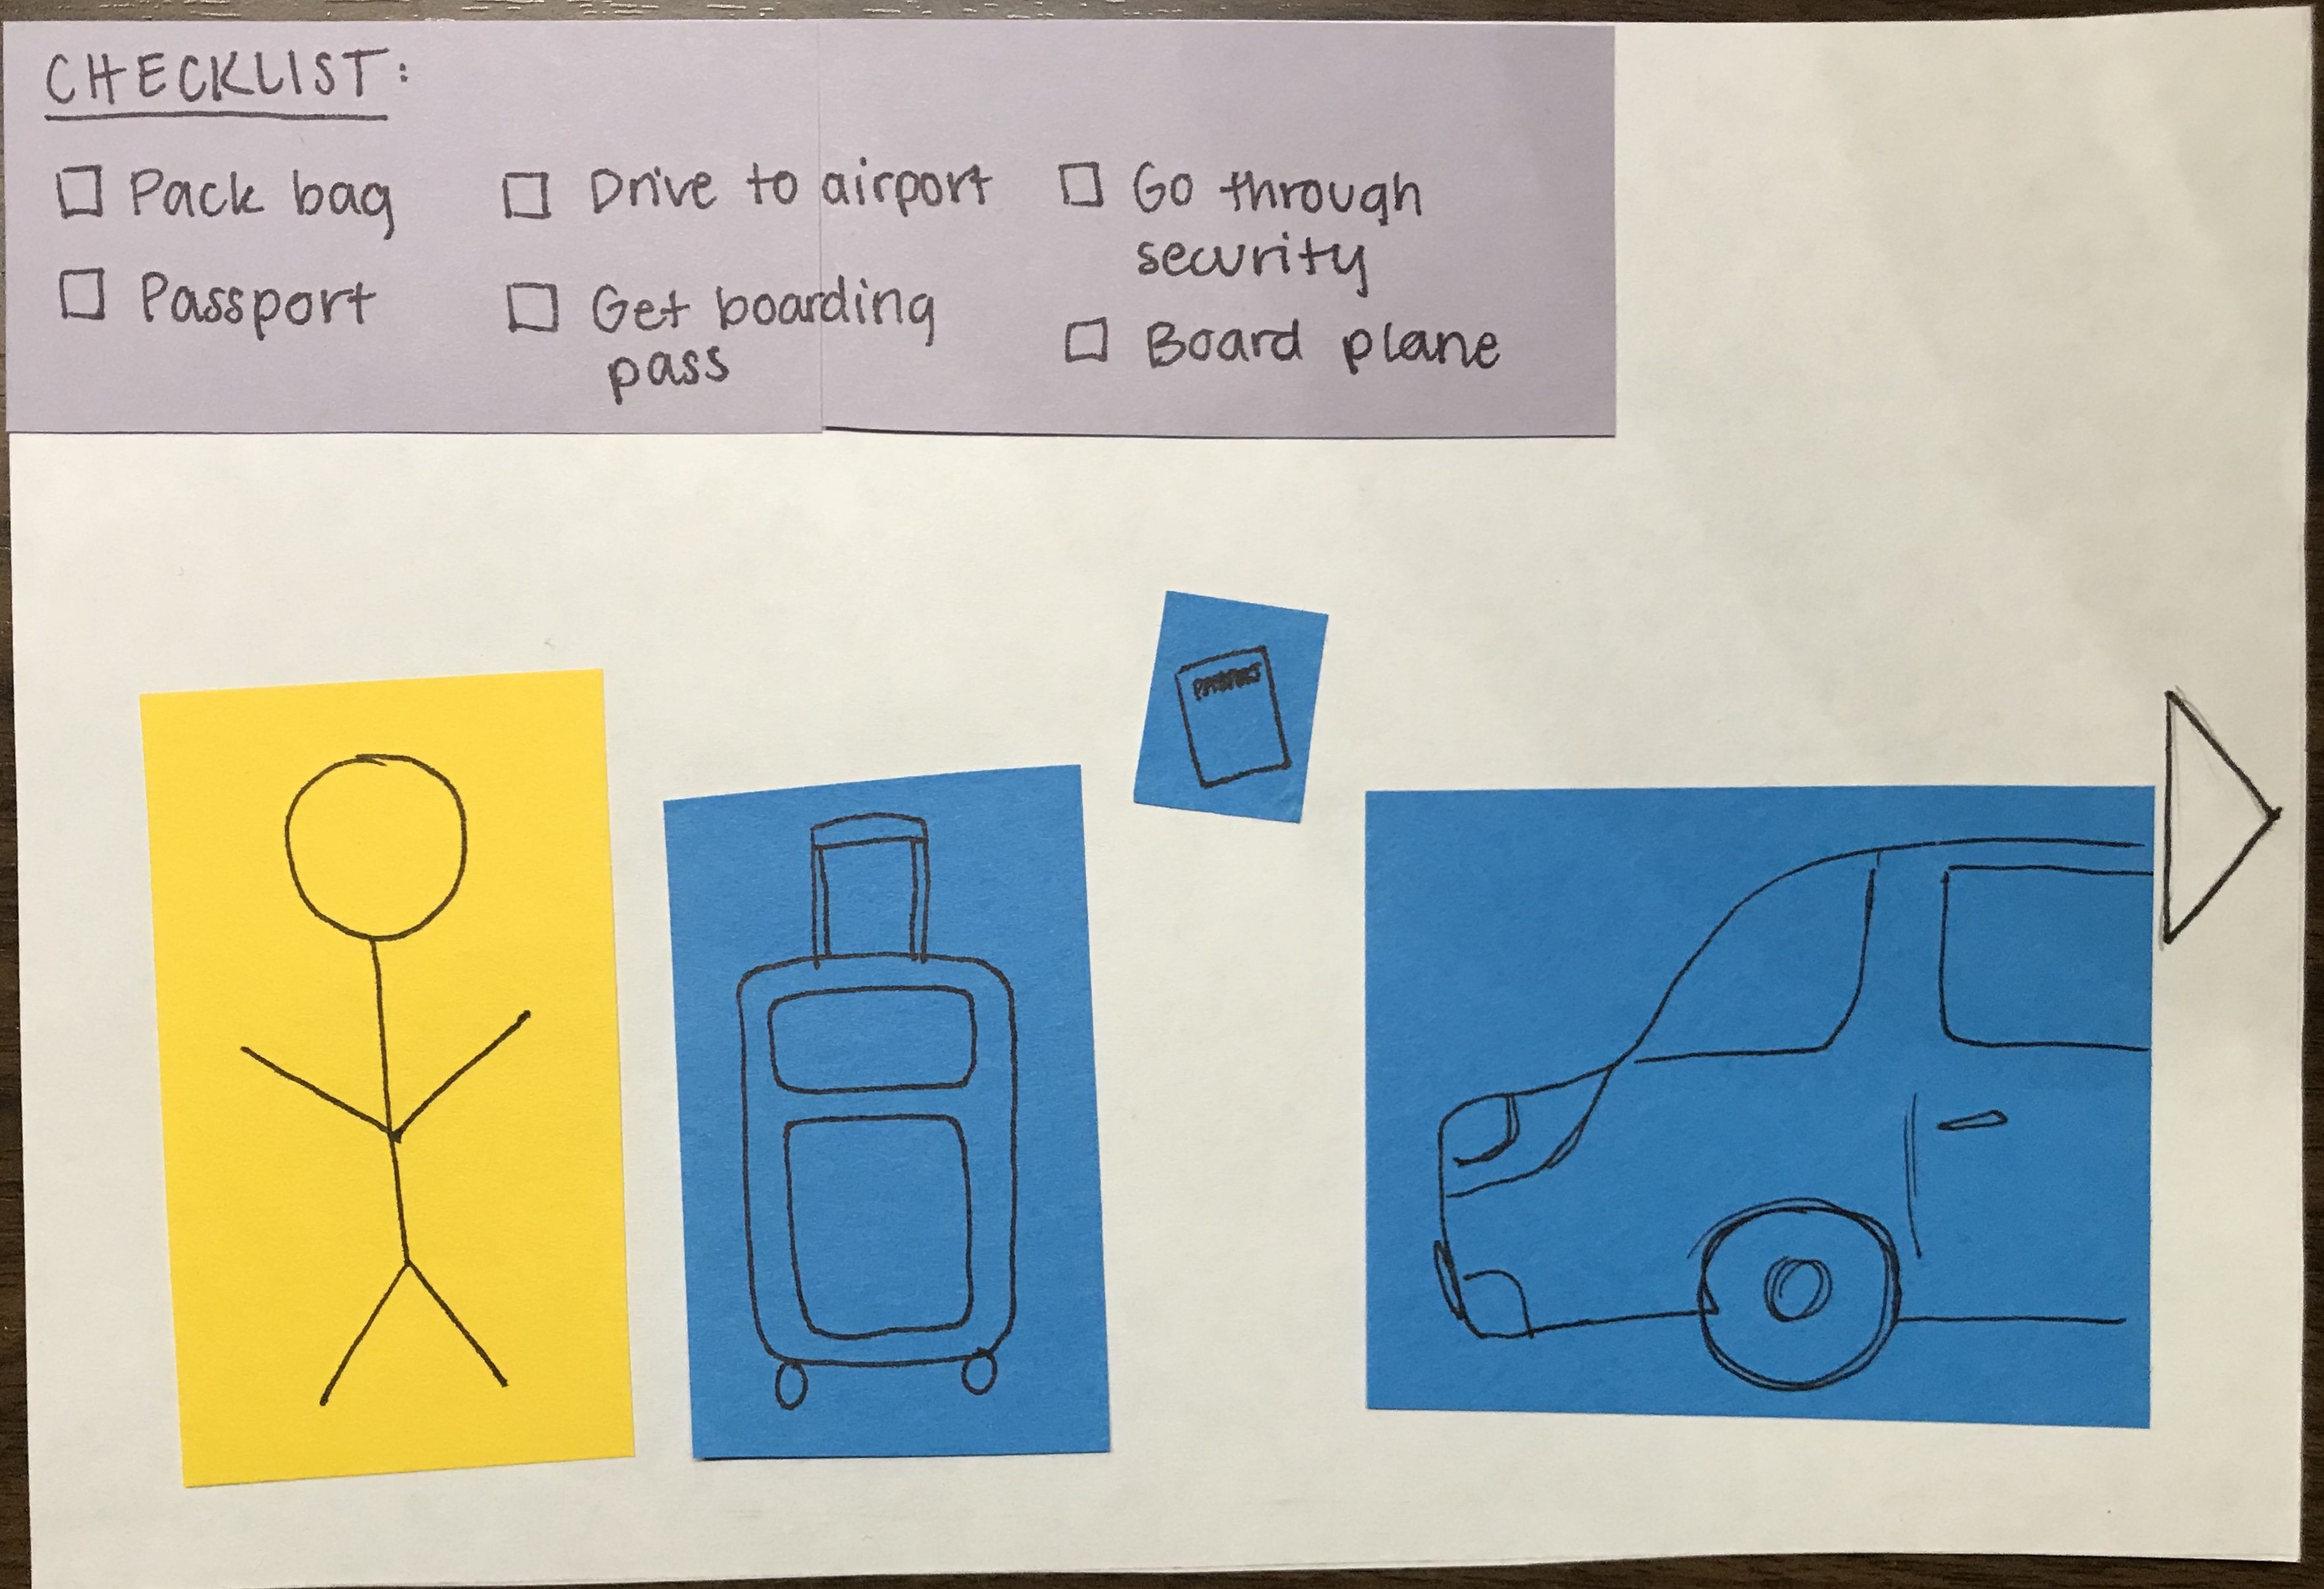 CHECKLIST:
Pack bag
Passport
Drive to airport
Get boarding
pass
Go through
security
Board plane
PASSPORT